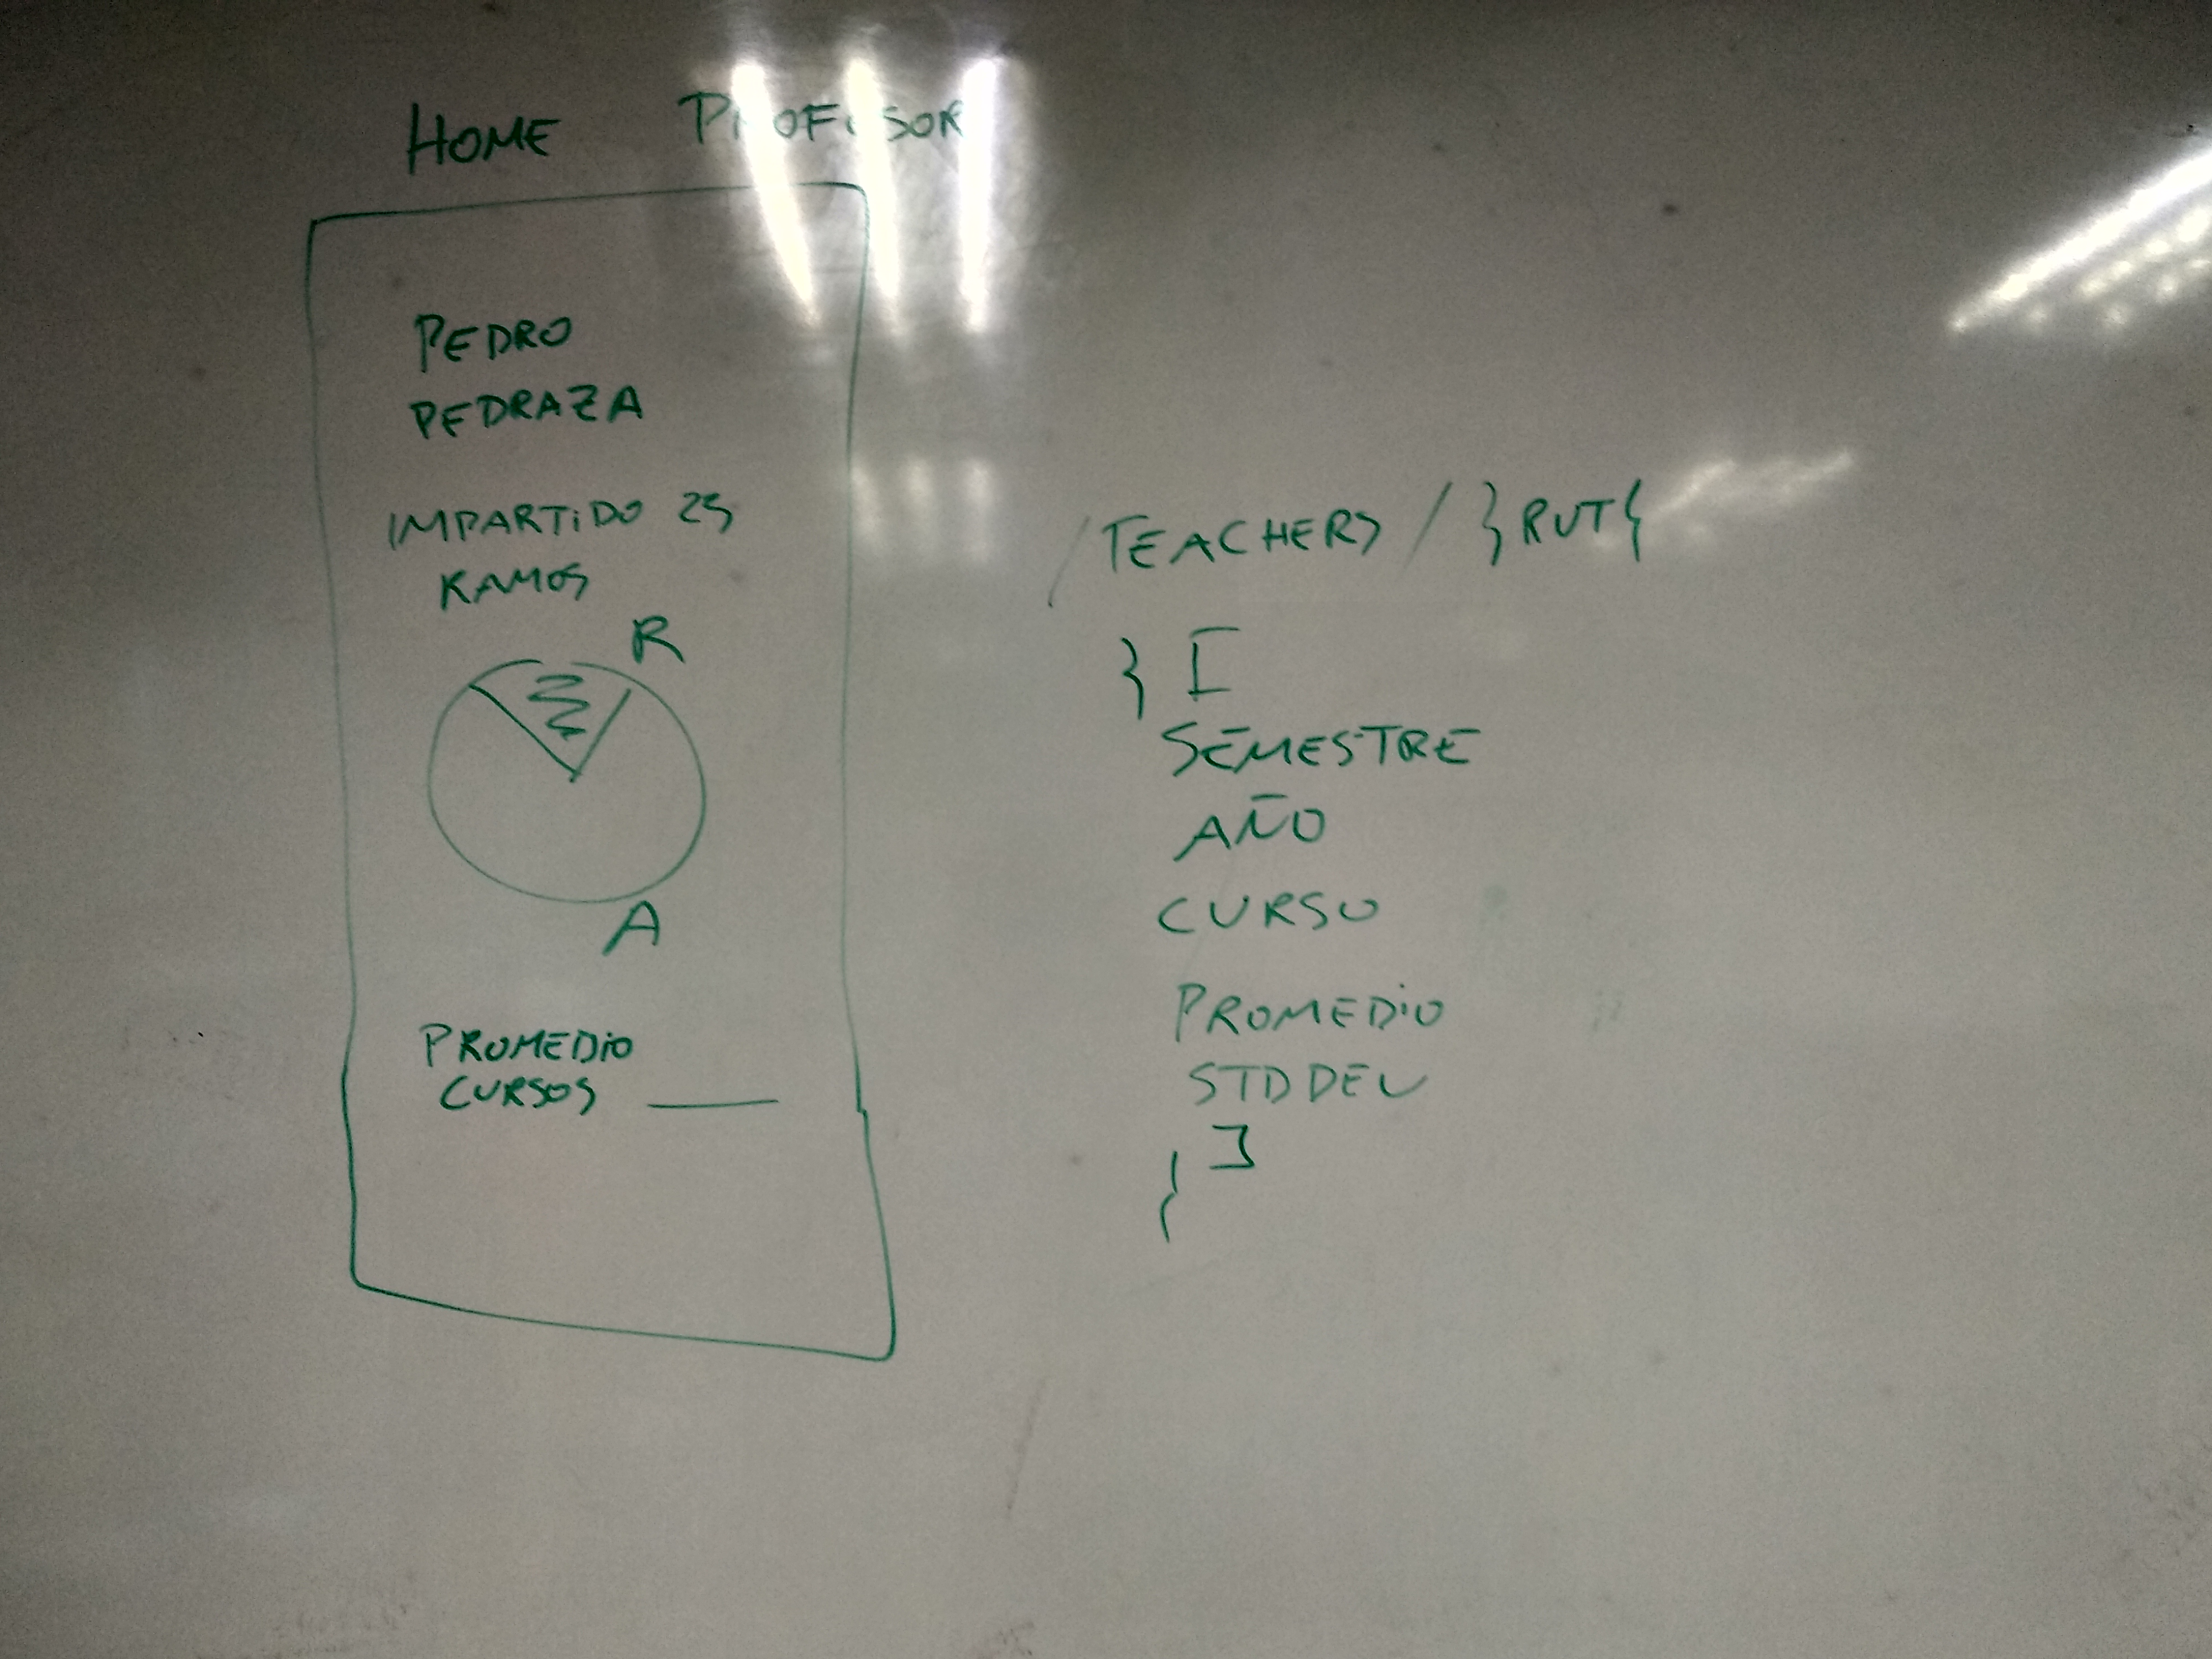 HOME PROFESOR
PEDRO
PEDRAZA
IMPARTIDO 25
RAMOS
R
A
PROMEDIO
CURSOS ____
/TEACHERS/}RUT{
} [
SEMESTRE
AÑO
CURSO
PROMEDIO
STDDEV
]
{